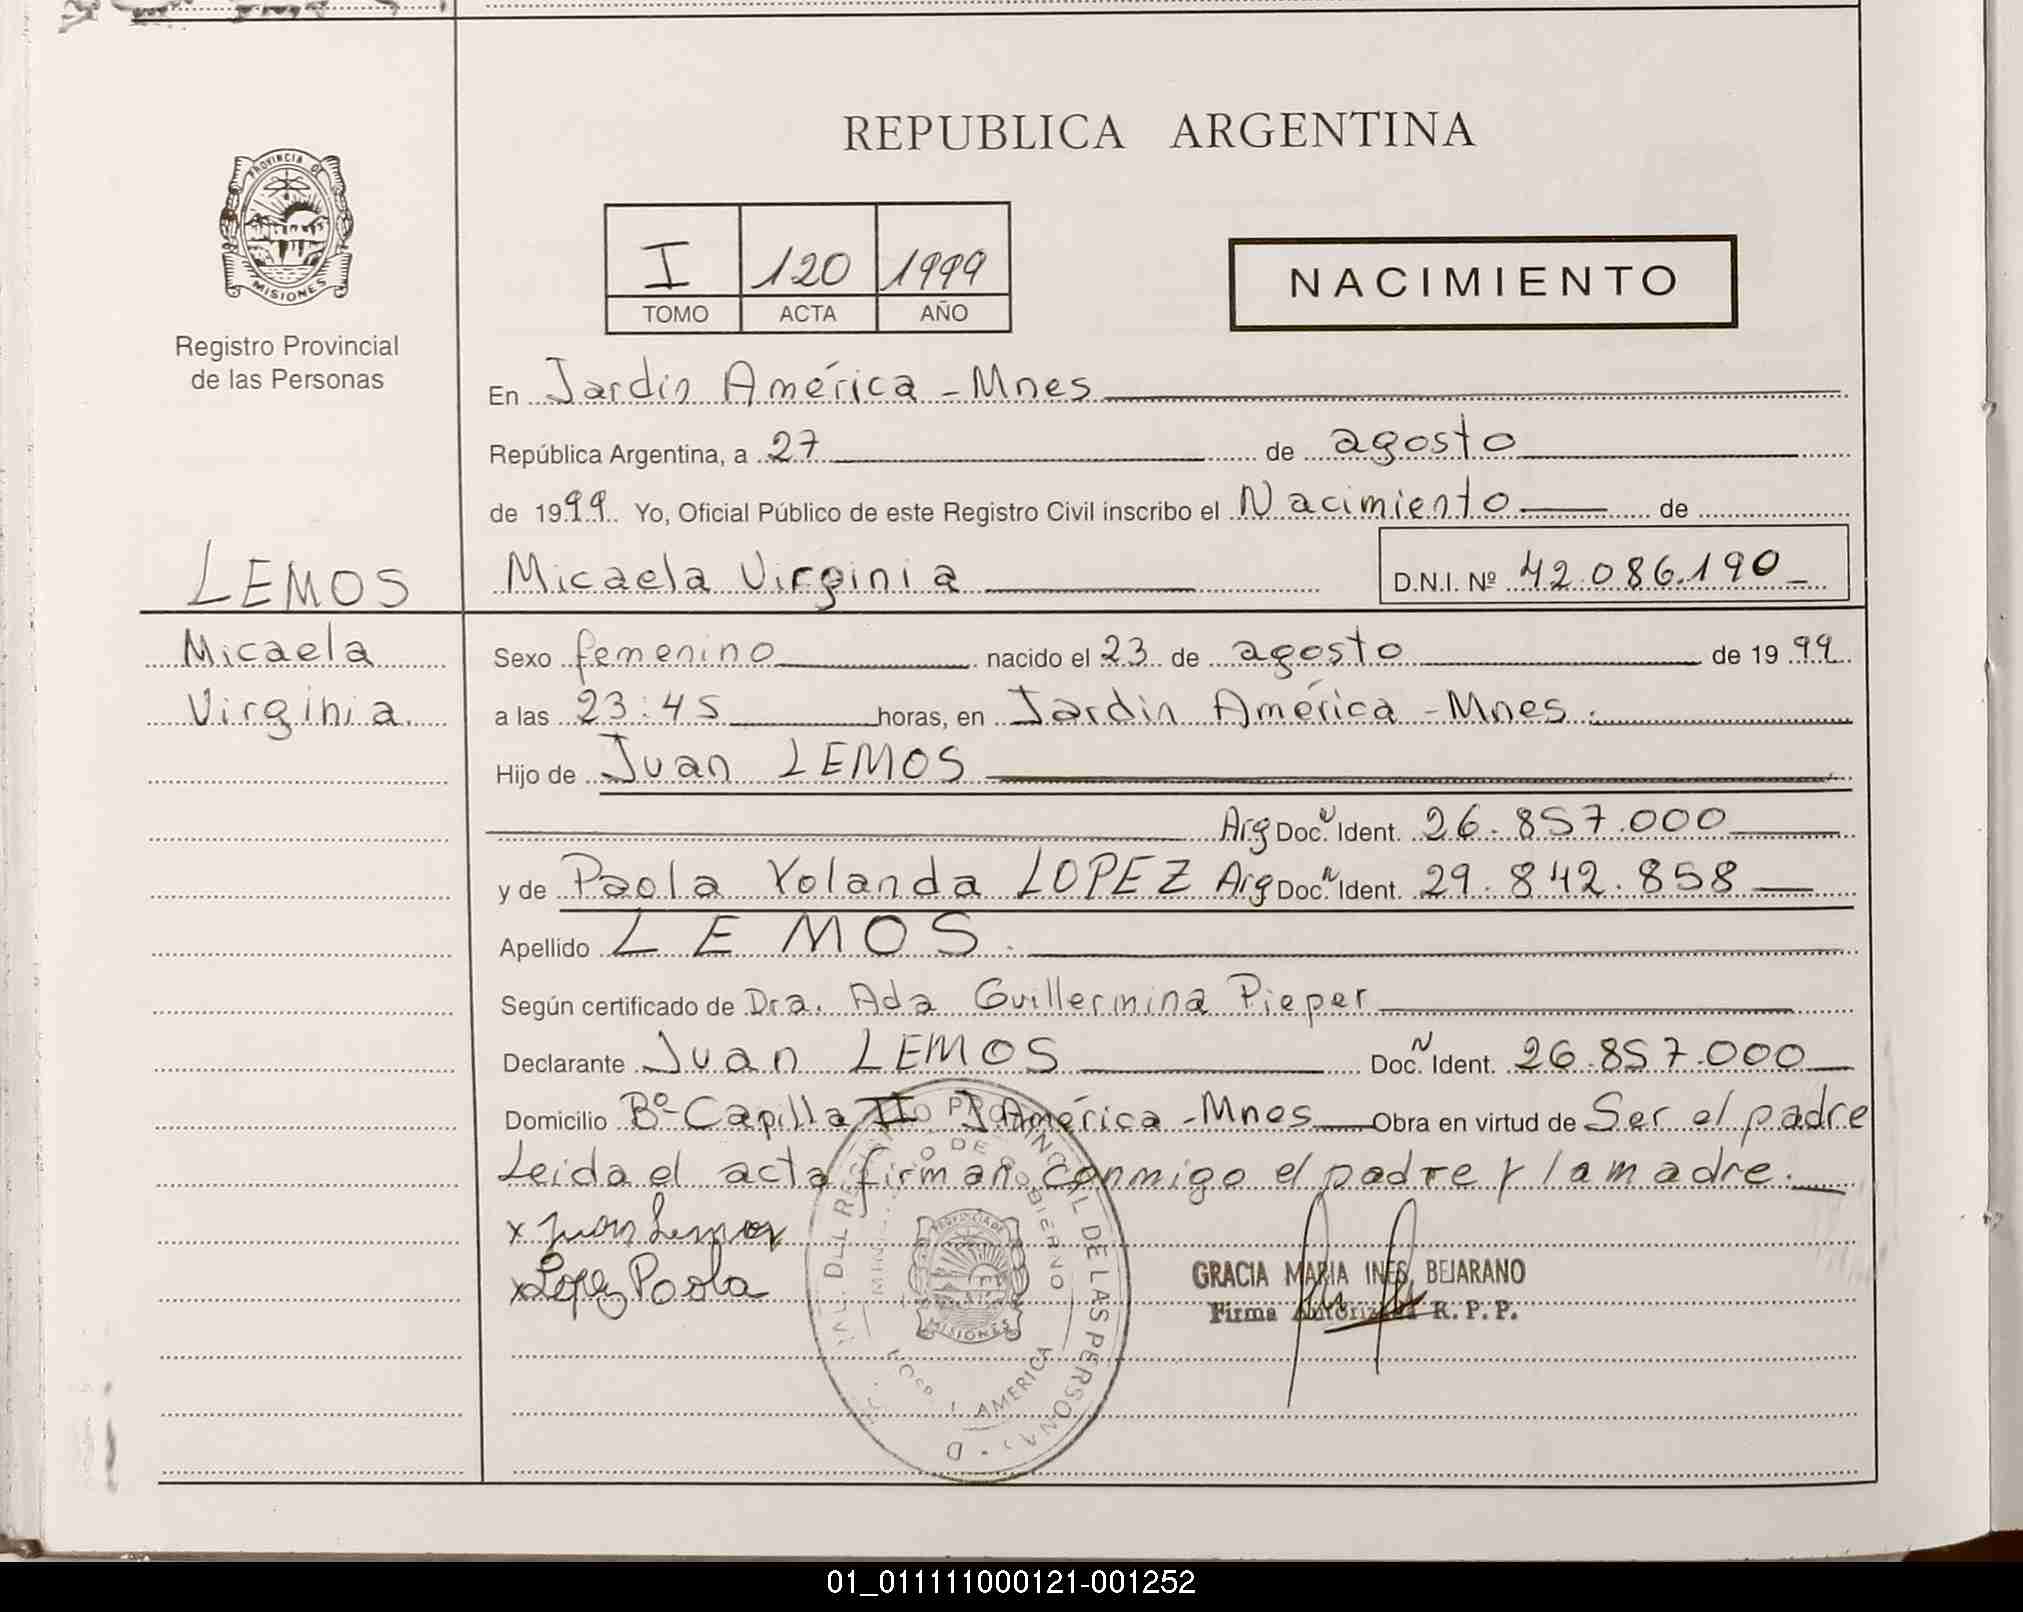 REPUBLICA ARGENTINA
PROVINCIA DE
MISIONES
Registro Provincial
de las Personas
I 120 1999
TOMO ACTA AÑO
NACIMIENTO
En Jardin América - Mnes
República Argentina, a 27 de agosto
de 1999. Yo, Oficial Público de este Registro Civil inscribo el Nacimiento de
LEMOS
Micaela Virginia D.N.I. Nº 42.086.190
Micaela
Virginia.
Sexo femenino nacido el 23 de agosto de 1999
a las 23:45 horas, en Jardin América - Mnes.
Hijo de Juan LEMOS
Arg Doc. N Ident. 26.857.000
y de Paola Yolanda LOPEZ Arg Doc. N Ident. 29.842.858
Apellido LEMOS.
Según certificado de Dra. Ada Guillermina Pieper
Declarante Juan LEMOS Doc. N Ident. 26.857.000
Domicilio Bº Capilla II J. América - Mnes Obra en virtud de Ser el padre
Leida el acta firman conmigo el padre y la madre.
x Juan Lemos
x Lopez Paola
PROVINCIAL DE LAS PERSONAS
DE GOBIERNO
PROVINCIA DE
MISIONES
AMERICA
GRACIA MARIA INES BEJARANO
Firma Autorizada R.P.P.
01_011111000121-001252